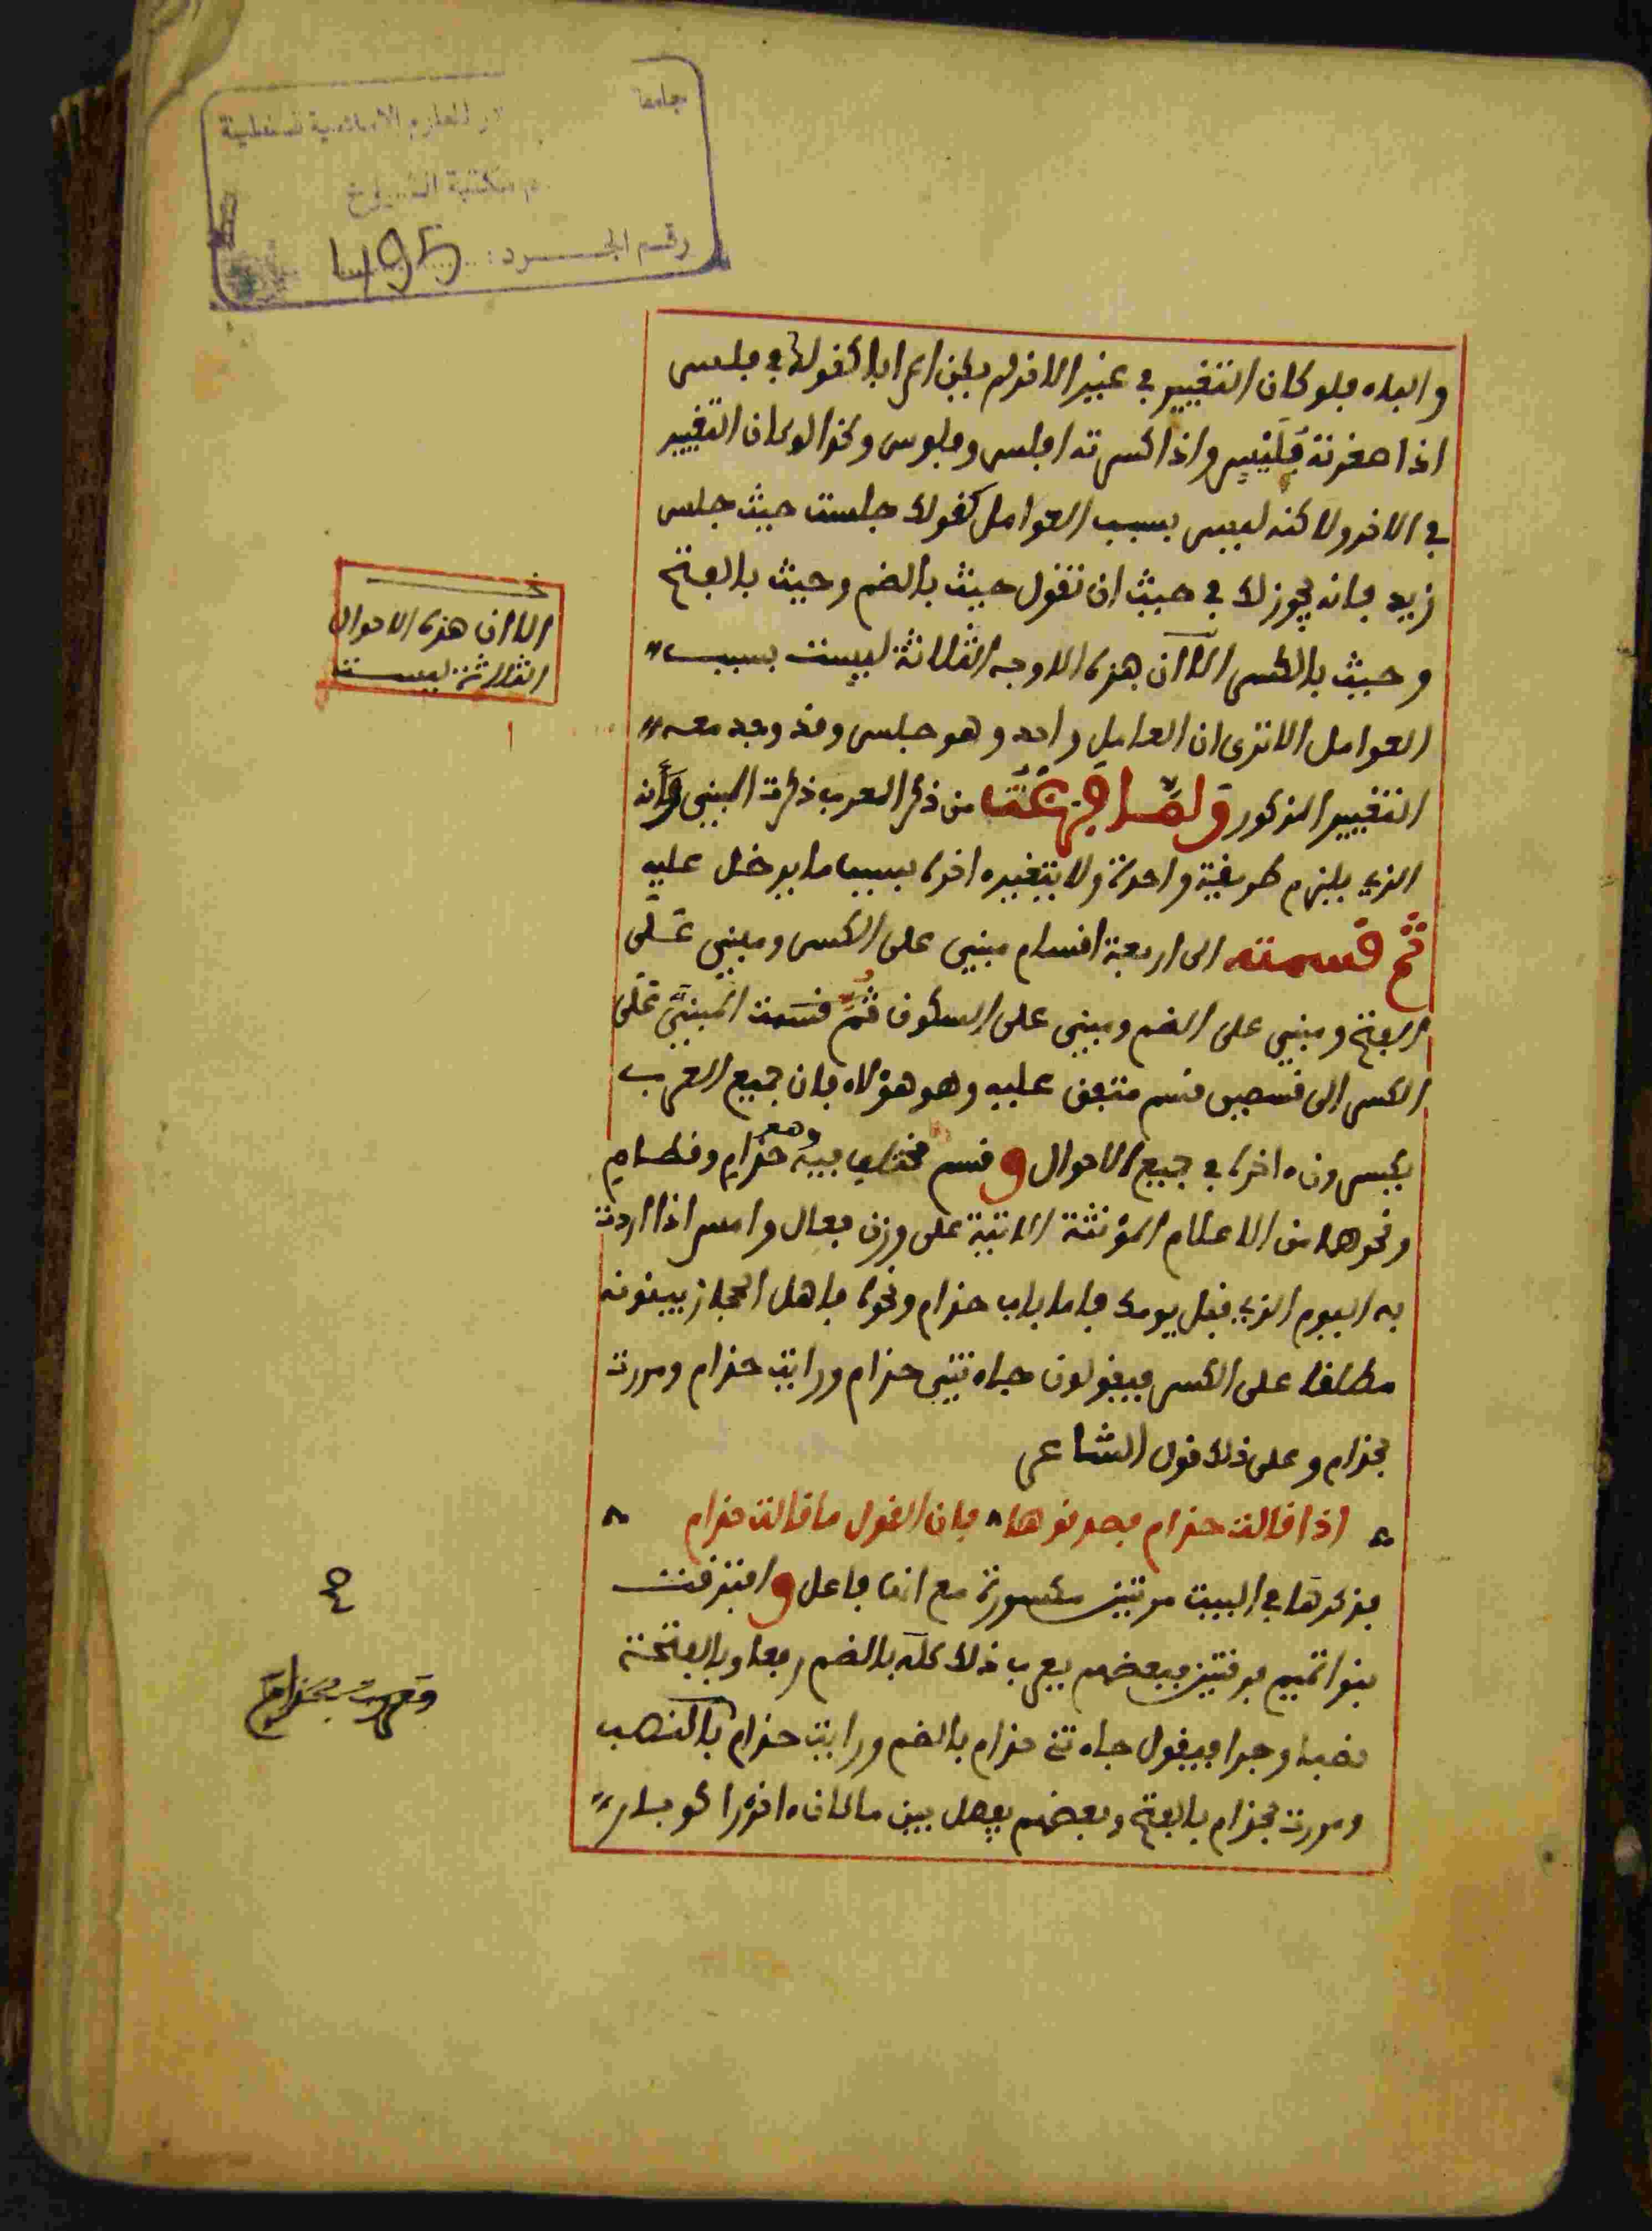 جامعة الأمير للعلوم الاسلامية قسنطينة
مكتبة الشيوخ
رقم الجرد: 495
والباء فلو كان التغيير في غير الاخر لم يكن اعرابا كقولك في فلس
اذا صغرته فُلَيْس واذا كسرته افلس وفلوس وكذا لو كان التغيير
في الاخر ولاكنه ليس بسبب العوامل كقولك جلست حيث جلس
زيد فانه يجوز لك في حيث ان تقول حيث بالضم وحيث بالفتح
وحيث بالكسر الا ان هذه الاوجه الثلاثة ليست بسبب
العوامل الا ترى ان العامل واحد وهو جلس وقد وجد معه
التغيير المذكور ولما فرغت من ذكر المعرب ذكرت المبني وأنه
الذي يلزم طريقة واحدة ولا يتغير ءاخره بسبب ما يدخل عليه
ثم قسمته الى اربعة اقسام مبني على الكسر ومبني عَلَى
الفتح ومبني على الضم ومبني على السكون ثُمَّ قسَمت المبنيَّ عَلَى
الكسر الى قسمين قسم متفق عليه وهو هؤلاء فان جميع العرب
يكسرون ءاخره في جميع الاحوال و قسم مختلف فيه وهو حذام وقطام
ونحوهما من الاعلام المؤنثة الاتية على وزن فعال وامس اذا اردت
به اليوم الذي قبل يومك فاما باب حذام ونحوه فاهل الحجاز يبنونه
مطلقا على الكسر فيقولون جاءتني حذام ورايت حذام ومررت
بحذام وعلى ذلك قول الشاعر
اذا قالت حذام فصدقوها فان القول ما قالت حذام
فذكرها في البيت مرتين مكسورة مع انها فاعل و افترقت
بنوا تميم فرقتين فبعضهم يعرب ذلك كله بالضم رفعا وبالفتحة
نصبا وجرا فيقول جاءتني حذام بالضم ورايت حذام بالنصب
ومررت بحذام بالفتح وبعضهم يفصل بين ما كان ءاخره را كوبار
الا ان هذه الاحوال
الثلاثة ليست